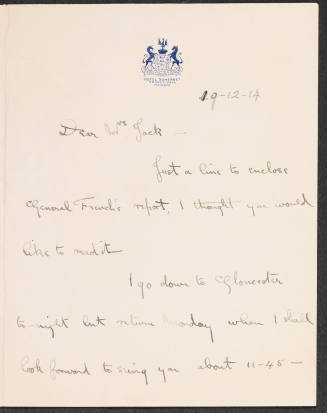 HOTEL SOMERSET
19-12-14
Dear Mrs Jack —
Just a line to enclose
General French's report, I thought you would
like to read it
I go down to Gloucester
to-night but return Monday when I shall
look forward to seeing you about 11-45 —